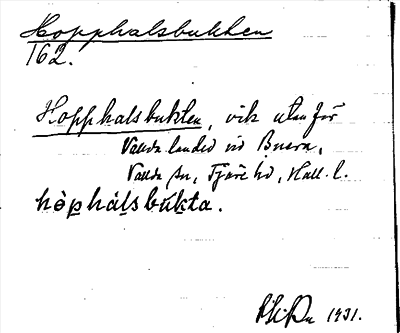 Hopphalsbukten
162.
Hopphalsbukten, vik utanför
Vallda landet vid Buera,
Vallda sn, Fjäre hd, Hall. l.
hòp̱háḻsbúḵta.
1931.